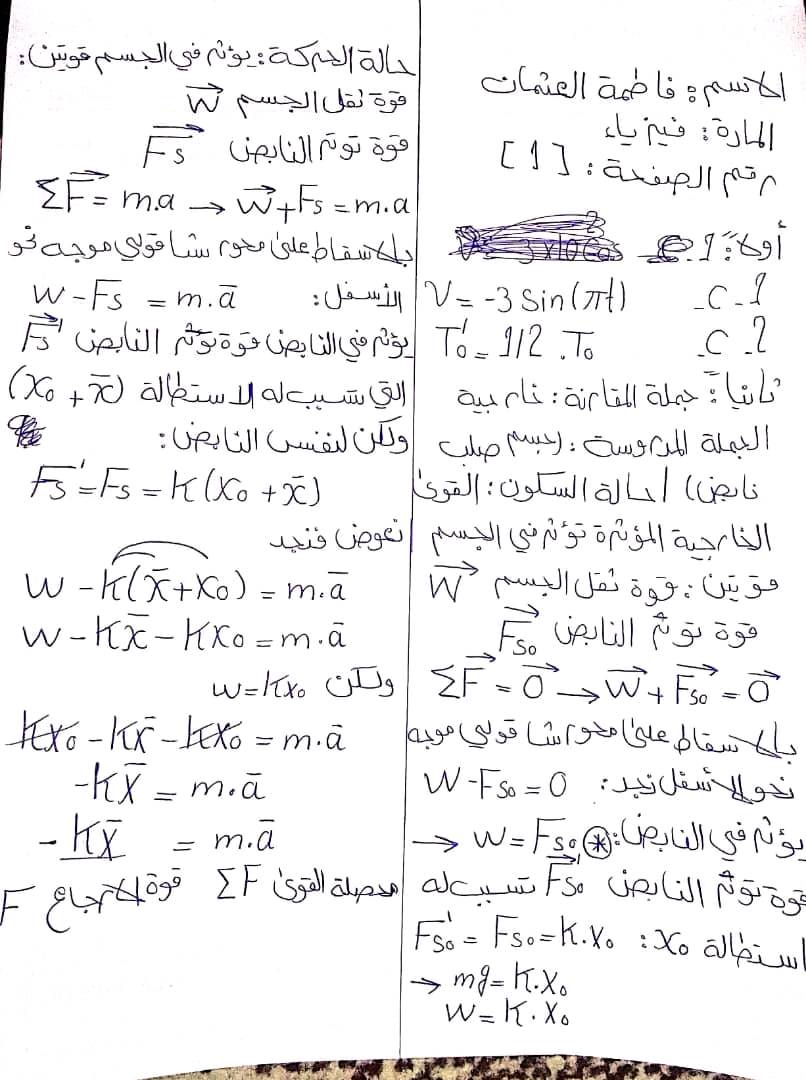 الاسم: فاطمة العثمان
المادة: فيزياء
رقم الصفحة: [1]
أولاً: 1.
1- C. V = -3 Sin(πt)
2- C. T₀' = 1/2 . T₀
ثانياً: جملة المقارنة: خارجية
الجملة المدروسة: (جسم صلب
نابض) / حالة السكون: القوى
الخارجية المؤثرة تؤثر في الجسم
قوتين: قوة ثقل الجسم W⃗
قوة توتر النابض F⃗s₀
ΣF⃗ = 0⃗ → W⃗ + F⃗s₀ = 0⃗
بالاسقاط على محور شاقولي موجه
نحو الأسفل نجد: W - Fs₀ = 0
→ W = Fs₀ ⊛ يؤثر في النابض:
قوة توتر النابض F⃗s₀' تسبب له
استطالة x₀: Fs₀' = Fs₀ = K.x₀
→ mg = K.x₀
W = K.x₀
حالة الحركة: يؤثر في الجسم قوتين:
قوة ثقل الجسم W⃗
قوة توتر النابض F⃗s
ΣF⃗ = m.a → W⃗ + Fs = m.a
بالاسقاط على محور شاقولي موجه نحو
الأسفل: W - Fs = m.ā
يؤثر في النابض قوة توتر النابض F⃗s'
التي تسبب له الاستطالة (x₀ + x̄)
ولكن لنفس النابض:
Fs' = Fs = K(x₀ + x̄)
نعوض فنجد
W - K(x̄ + x₀) = m.ā
W - Kx̄ - Kx₀ = m.ā
ولكن W = Kx₀
Kx₀ - Kx̄ - Kx₀ = m.ā
-Kx̄ = m.ā
-Kx̄ = m.ā
محصلة القوى ΣF قوة الارجاع F